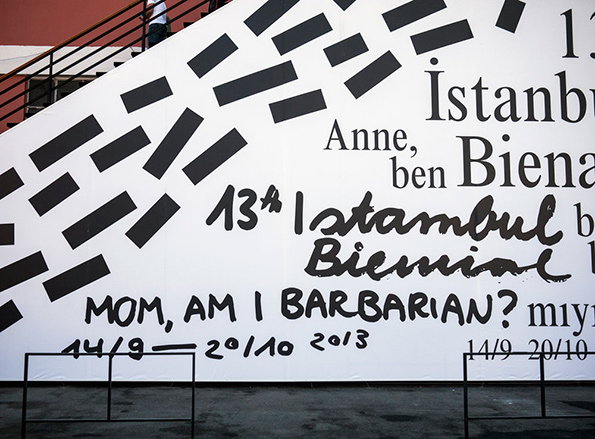 13
İstanbu
Anne,
ben Biena
13th Istanbul b
Biennial
MOM, AM I BARBARIAN? mıyı
14/9 — 20/10 2013 14/9 – 20/10